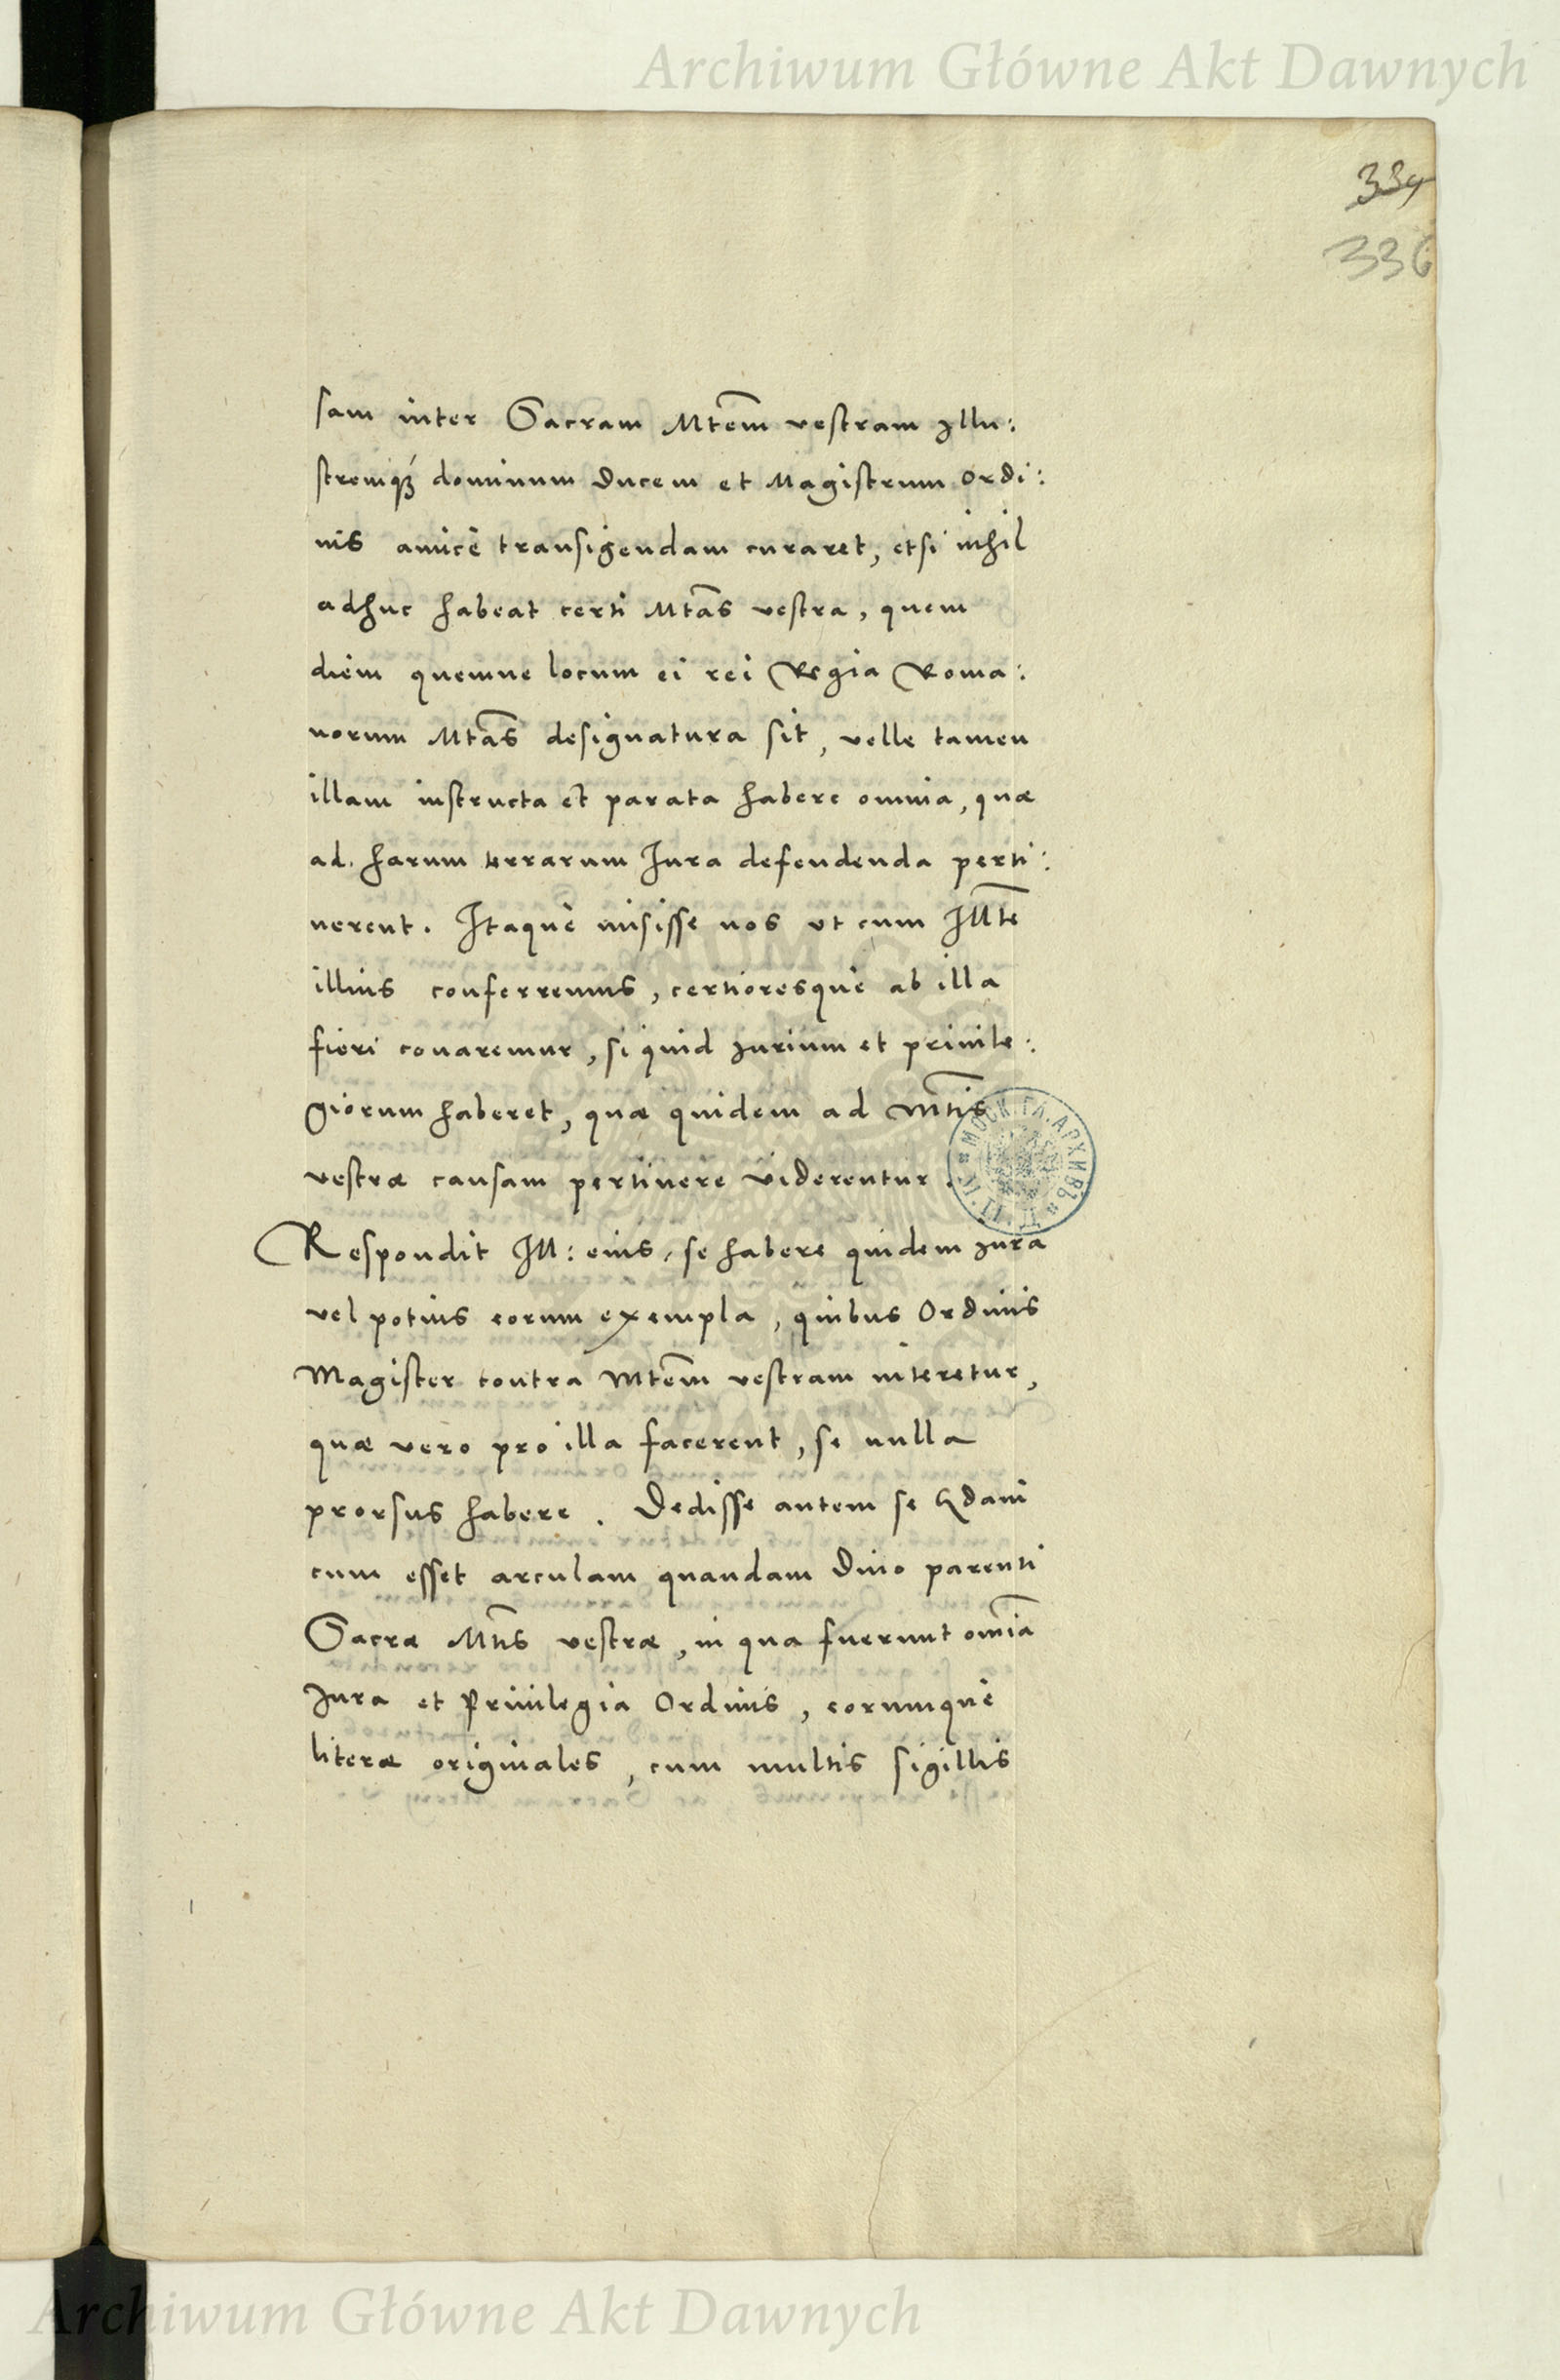 Archiwum Główne Akt Dawnych
334
336
sam inter Sacram Mtem vestram Illu:
stremq3 dominum Ducem et Magistrum Ordi:
nis amice transigendam curaret, etsi nihil
adhuc habeat certi Mtas vestra, quem
diem quemue locum ei rei Regia Roma:
norum Mtas designatura sit, velle tamen
illam instructa et parata habere omnia, quæ
ad harum terrarum Jura defendenda perti:
nerent. Itaque misisse nos vt cum Illte
illius conferremus, certioresque ab illa
fieri conaremur, si quid Jurium et priuile:
giorum haberet, quæ quidem ad Mtis
vestræ causam pertinere viderentur.
Respondit Ill: eius, se habere quidem Jura
vel potius eorum exempla, quibus Ordinis
Magister contra Mtem vestram niteretur,
quæ vero pro illa facerent, se nulla
prorsus habere. Dedisse autem se
cum esset arculam quandam Diuo parenti
Sacræ Mtis vestræ, in qua fuerunt omia
Jura et Priuilegia Ordinis, eorumque
literæ originales, cum multis sigillis
МОСК. ГЛ. АРХИВЪ
Archiwum Główne Akt Dawnych